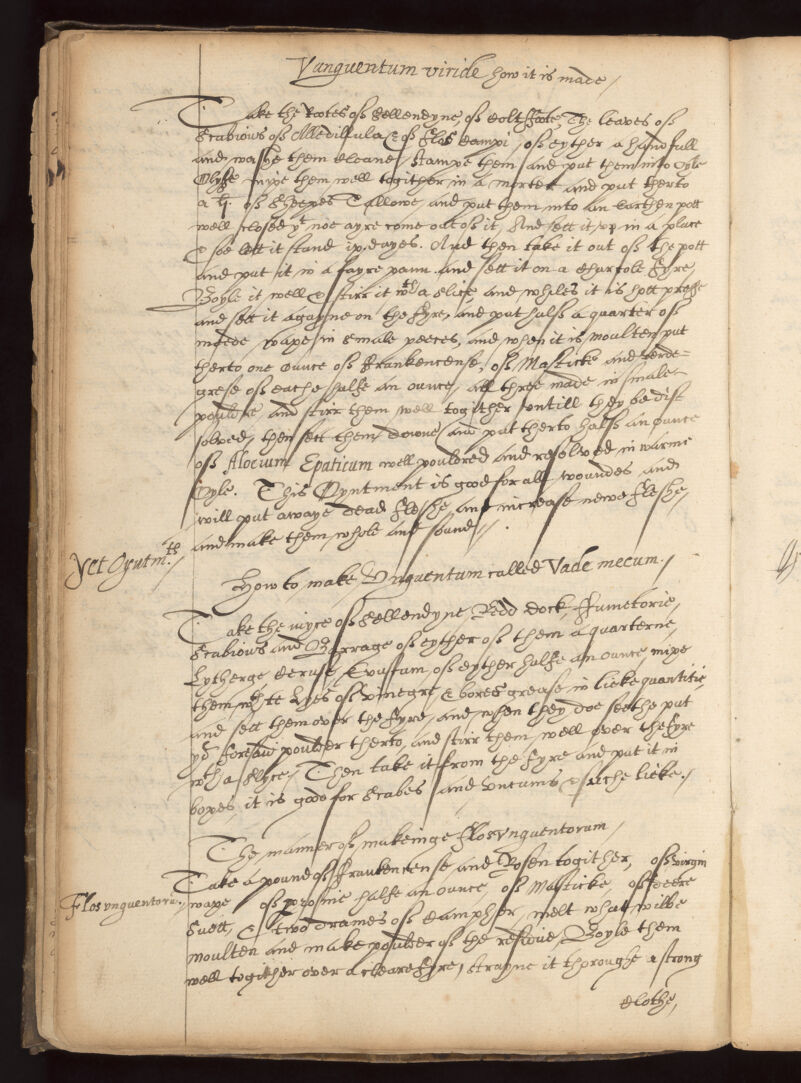 Vunguentum viride how it is made /
Take the Rootes off Sellendyne, off Coltffoote, The leaves off
Scabious off Medissula, & off flos Campi, off eyther a handfull
and washe them cleane, stampe them, and put them into Oyle
Olyffe, myxe them well togither in a morter and put therto
a li off Sheepes Tallowe, and put them into an Earthen pott
well closed yt noe ayre come out off it, And sett it up in a place
& soe lett it stand ix dayes. And then take it out off the pott
and put it in a fayre pann and sett it on a Charcole fyre,
Boyle it well & stirr it wth a Slice, and whiles it is hott presse
and sett it agayne on the fyre, and put halff a quarter off
waxe in smale peeces, and when it is moulten put
therto one ounce off Frankencense, off Masticke and verde=
grese off eache halfe an ounce, all three made in smale
poulder, and stirr them well togither untill they be diss
solved, then sett them downe and put therto halff an ounce
off Aloeium Epaticum well pouldred and resolved in warme
Oyle. This Oyntment is good for all woundes and
will put awaye dead fleshe, and increase newe fleshe,
and make them whole and sound //.
How to make Vnguentum called Vade mecum. /
Take the iuyce off Sellendyne, Redd dock, ffumetorie,
Scabious and Borrage off eyther off them a quarterne,
Lytherge Ceruse, off eyther halfe an ounce, mixe
them wth Lyes off vinegre & bores grease in lieke quantitie,
and sett them over the fyre, and when they doe seethe put
ye foresaid poulder therto, and stirr them well over the fyre
wth a Slyce, Then take it from the fyre and put it in
boxes, it is good for Scabes and & suche lieke. /
The manner off makeinge flos vnguentorum /
Flos vnguentoru.
Take a pound off Frankencense and Rosen togither, off virgin
waxe off halfe an ounce, off Masticke, off deere
Suett, & two drames off Campher, melt what wilbe
moulten and make poulder off the residue, Boyle them
well togither over a cleare fyre, strayne it throughe a strong
clothe,